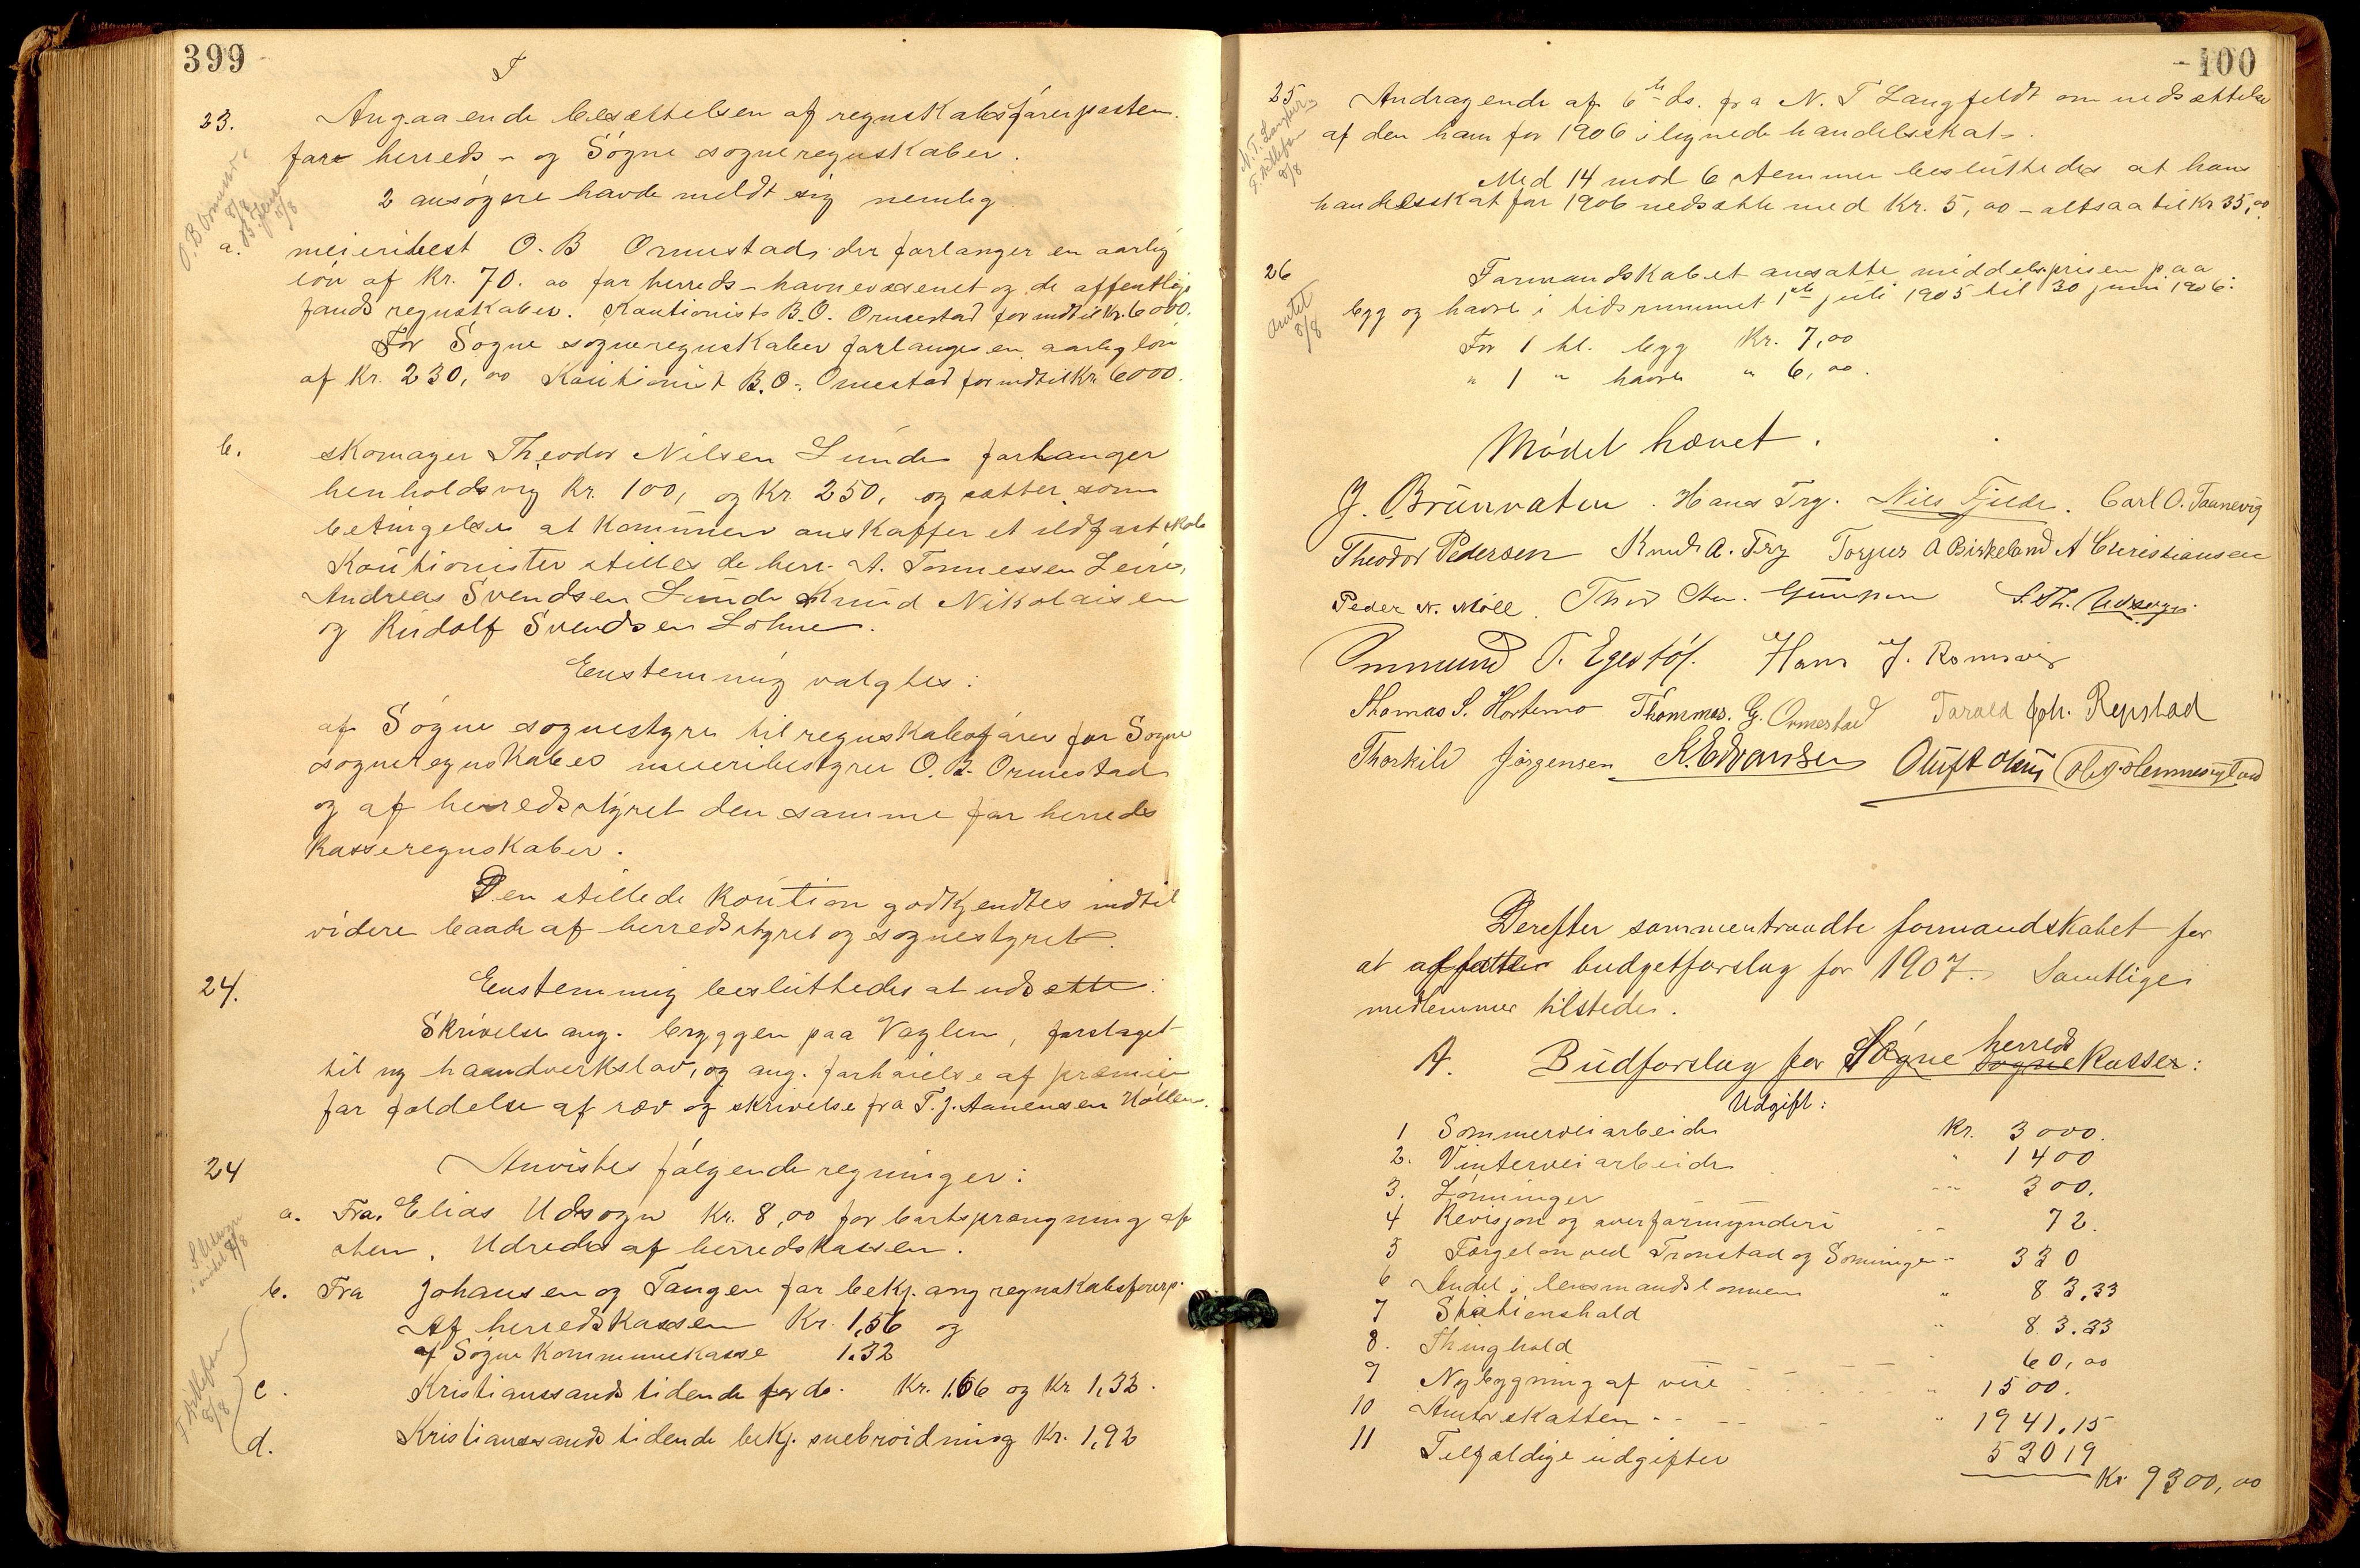 399
23. Angaaende besættelsen af regnskabsførerposten
for herreds- og Søgne sogneregnskaber.
2 ansøgere havde meldt sig nemlig
O. B. Ormestad
8/8
a. meieribest O. B Ormestad, der forlanger en aarlig
løn af kr. 70.00 for herreds- havnevæsenet og de offentlige
fonds regnskaber. Kautionist B. O. Ormestad for indtil kr. 6000.
For Søgne sogneregnskaber forlanges en aarlig løn
af kr. 230,00 Kautionist B. O. Ormestad for indtil kr 6000.
b. skomager Theodor Nilsen Lunde forlanger
henholdsvig kr. 100, og kr 250, og sætter som
betingelse at kommunen anskaffer et ildfast skab
Kautionister stilles de herr. A. Tønnessen Leire,
Andreas Svendsen Lunde Knud Nikolaisen
og Rudolf Svendsen Lohne.
Enstemmig valgtes:
af Søgne sognestyre til regnskabsfører for Søgne
sogneregnskaber meieribestyrer O. B. Ormestad
og af herredsstyret den samme for herreds
kasseregnskaber.
Den stillede kaution godkjendtes indtil
videre baade af herredsstyret og sognestyret.
24. Enstemmig besluttedes at udsætte:
Skrivelse ang. bryggen paa Vaglen, forslaget
til ny haandverkslov, og ang. forhøielse af præmien
for fældelse af ræv og skrivelse fra T. J. Aanensen Høllen.
24 Anvistes følgende regninger:
a. Fra Elias Udsogn kr. 8,00 for bortsprængning af
sten. Udredes af herredskassen.
b. Fra Johansen og Tangen for bekj. ang regnskabsførerp.
Af herredskassen kr. 1,56 og
af Søgne kommunekasse 1.32
c. Kristianssands tidende for do. kr. 1.66 og kr 1,32.
d. Kristianssands tidende bekj. snebrøidning kr. 1,92
F. Ditlefsen
8/8
400
25 Andragende af 6te ds. fra N. T Langfeldt om nedsættelse
af den ham for 1906 ilignede handelsskat.
Med 14 mod 6 stemmer besluttedes at hans
handelsskat for 1906 nedsætte med kr. 5,00 - altsaa til kr 35,00
26 Formandskabet ansatte middelsprisen paa
Amtet
8/8
bygg og havre i tidsrummet 1ste juli 1905 til 30 juni 1906:
For 1 hl. bygg kr. 7,00
" 1 " havre " 6,00.
Mødet hævet.
J. Brunvatne. Hans Try. Nils Fjelde. Carl O. Taanevig
Theodor Pedersen Knud A. Try Torjus A Birkeland A Christiansen
Peder N. Møll. S. Th. Udsogn.
Ommund T. Egestøl. Hans J. Romsvig
Thomas S. Hortemo Thommas. G. Ormestad Tarald Joh. Repstad
Thorkild Jørgensen K. Edvardsen
Derefter sammentraadte formandskabet for
at affatte budgetforslag for 1907. Samtlige
medlemmer tilstede.
A. Budforslag for Søgne sogne herreds kasse:
Udgift:
1 Sommerveiarbeide kr. 3000.
2. Vinterveiarbeide " 1400
3. Lønninger " 300.
4 Revisjon og overformynderi " 72.
5 Færgeløn ved Tronstad og Sominger " 330
6 Andel i lensmandslønnen " 83.33
7 Skationshold " 83.33
8. Thinghold " 60,00
9 Nybygning af veie " 1500.
10 Amtsskatten " 1941.15
11 Tilfældige udgifter 530 19
Kr 9300,00